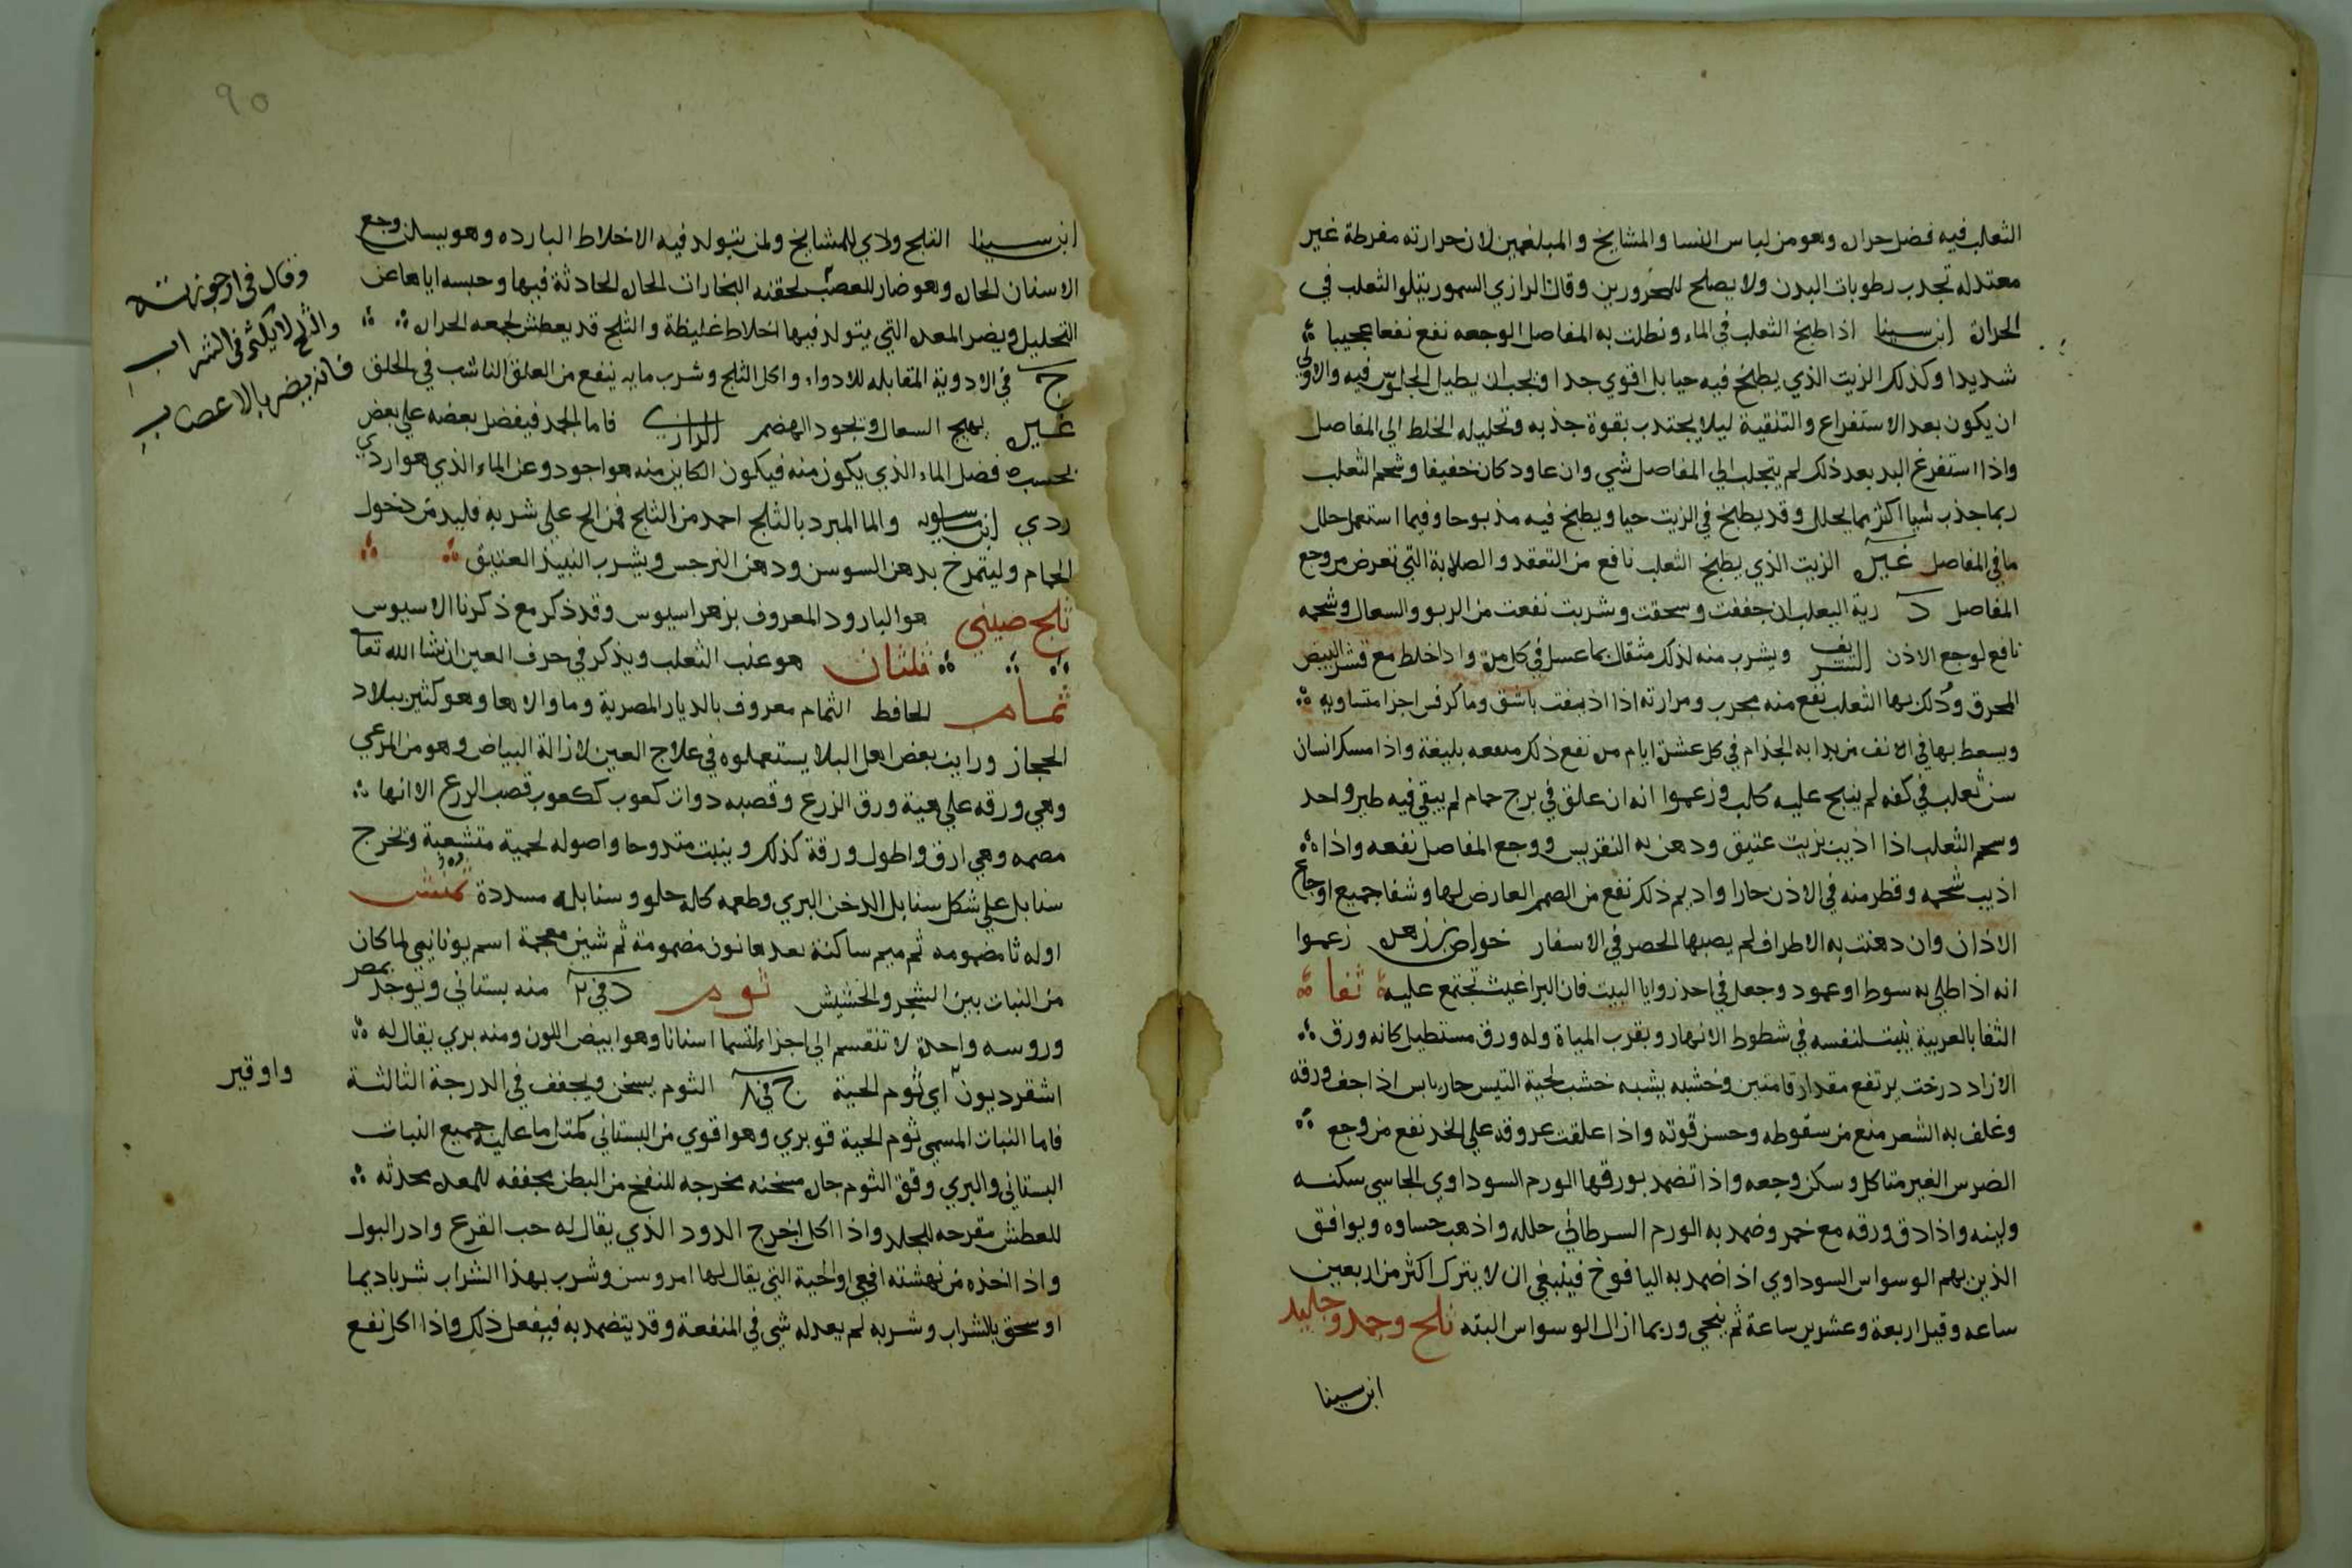 الثعلب فيه فضل حراره وهو من لباس النسا والمشايخ والمبلغمين لان حرارته مفرطة غير
معتدله تجذب رطوبات البدن ولا يصلح للمحرورين وقال الرازي السمور يتلوا الثعلب في
الحرارة ابن سينا اذا طبخ الثعلب في الماء ونطلت به المفاصل الوجعه نفع نفعا عجيبا
شديدا وكذلك الزيت الذي يطبخ فيه حيا بل اقوي جدا ويجب ان يطيل الجلوس فيه والاولي
ان يكون بعد الاستفراع والتنقية ليلا يجتذب بقوة جذبه وتحليله الخلط الي المفاصل
واذا استفرغ البدن بعد ذلك لم يتجلب الي المفاصل شي وان عاود كان خفيفا وشحم الثعلب
ربما جذب شيا اكثر مما يحلل وقد يطبخ في الزيت حيا ويطبخ فيه مذبوحا وفيما استعمل حلل
ما في المفاصل غيره الزيت الذي يطبخ الثعلب نافع من التعقد والصلابة التي تعرض من وجع
المفاصل د رية الثعلب ان جففت وسحقت وشربت نفعت من الربو والسعال وشحمه
نافع لوجع الاذن الشريف ويشرب منه لذلك مثقال بما عسل في كل مرة واذا خلط مع قشر البيض
المحرق ودلك بها الثعلب نفع منه مجرب ومرارته اذا اذيفت باشق وما كرفس اجزا متساويه
ويسعط بها في الانف من بدا به الجذام في كل عشرة ايام مره نفع ذلك منفعه بليغة واذا مسك انسان
سن ثعلب في كفه لم ينبح عليه كلب وزعموا انه ان علق في برج حمام لم يبقي فيه طير واحد
وشحم الثعلب اذا اذيب بزيت عتيق ودهن به النقريس ووجع المفاصل نفعه واذا
اذيب شحمه وقطر منه في الاذن حارا واديم ذلك نفع من الصمم العارض لها وشفا جميع اوجاع
الاذان وان دهنت به الاطراف لم يصبها الحصر في الاسفار خواص بن زهر زعموا
انه اذا طلي به سوط او عمود وجعل في احد زوايا البيت فان البراغيث تجتمع عليه ثفا
الثفا بالعربية ينبت لنفسه في شطوط الانهار وبقرب المياة وله ورق مستطيل كانه ورق
الازاد درخت يرتفع مقدار قامتين وخشبه يشبه خشب لحية التيس حار يابس اذا جفف ورقه
وغلف به الشعر منع من سقوطه وحسن قوته واذا علقت عروقه علي الخد نفع من وجع
الضرس الغير متاكل وسكن وجعه واذا تضمد بورقها الورم السوداوي الجاسي سكنه
ولينه واذا دق ورقه مع خمر وضمد به الورم السرطاني حلله واذهب جساوه ويوافق
الذين بهم الوسواس السوداوي اذا ضمد به اليافوخ فينبغي ان لا يترك اكثر من اربعين
ساعه وقيل اربعة وعشرين ساعة ثم ينحي وربما ازال الوسواس البته ثلج وجمد وجليد
ابن سينا
٩٥
ابن سينا الثلج ردي للمشايخ ولمن يتولد فيه الاخلاط البارده وهو يسكن وجع
الاسنان الحاره وهو ضار للعصب لحقنه البخارات الحاره الحادثة فيها وحبسه اياها عن
التحليل ويضر المعده التي يتولد فيها اخلاط غليظة والثلج قد يعطش لجمعه الحرارة
ج في الادوية المقابله للادواء واكل الثلج وشرب مايه ينفع من العلق الناشب في الحلق
غيره يهيج السعال ويجود الهضم الرازي فاما الجمد فيفضل بعضه علي بعض
بحسب فضل الماء الذي يكون منه فيكون الكاين منه هو اجود وعن الماء الذي هو اردي
ردي ابن ماسويه والما المبرد بالثلج احمد من الثلج فمن الح علي شربه فليدمن دخول
الحمام وليتمرخ بدهن السوسن ودهن النرجس ويشرب النبيذ العتيق
ثلج صيني هو البارود المعروف بزهر اسيوس وقد ذكر مع ذكرنا الاسيوس
ثلثان هو عنب الثعلب ويذكر في حرف العين ان شا الله تعا
ثمام الحافظ الثمام معروف بالديار المصرية وما والاها وهو كثير ببلاد
الحجاز ورايت بعض اهل البلاد يستعملوه في علاج العين لازالة البياض وهو من المرعي
وهي ورقه علي هية ورق الزرع وقصبه دوات كعوب ككعوب قصب الزرع الا انها
مصمه وهي ارق واطول ورقة كذلك وينبت متدوحا واصوله لحمية متشعبة وتخرج
سنابل علي شكل سنابل الدخن البري وطعمه كله حلو وسنابله مسددة ثمنش
اوله ثا مضمومه ثم ميم ساكنة بعدها نون مضمومة ثم شين معجمة اسم يوناني لما كان
من النبات بين الشجر والحشيش ثوم د في منه بستاني ويوجد بمصر
وروسه واحدة لا تنقسم الي اجزاء لتسما اسنانا وهو ابيض اللون ومنه بري يقال له
اشقرديون اي ثوم الحية ج في الثوم يسخن ويجفف في الدرجة الثالثة
فاما النبات المسمي ثوم الحية فهو بري وهو اقوي من البستاني كمثل ما عليه جميع النبات
البستاني والبري وقوة الثوم حارة مسخنه مخرجه للنفخ من البطن مجففه للمعدة محدثه
للعطش مقرحه للجلد واذا اكل اخرج الدود الذي يقال له حب القرع وادر البول
واذا اخذه من نهشته افعي او الحية التي يقال لها امروس وشرب بهذا الشراب شربا ديما
او سحق بالشراب وشربه لم يعدله شي في المنفعة وقد يتضمد به فيفعل ذلك واذا اكل نفع
وقال في ارجوزته
والثلج لا يكثر في الشراب
فانه يضر بالاعصاب
واوقير